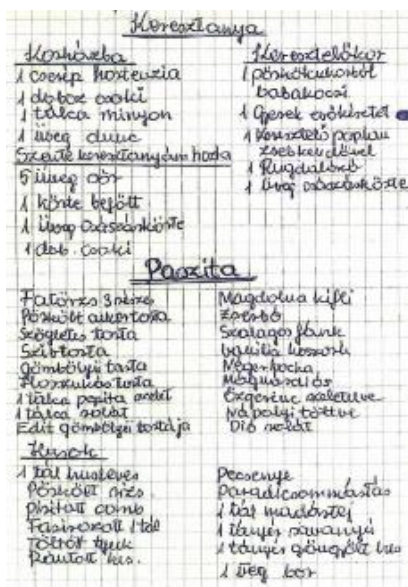 Keresztanya
Kórházba
1 cserép hortenzia
1 doboz csoki
1 tálca minyon
1 üveg dunc
Szeitz keresztanyám hozta
5 üveg sör
1 körte befőtt
1 üveg császárkörte
1 dob. csoki
Keresztelőkor
1 pörköltcukorból
babakocsi
1 Gyerek
1 keresztelő paplan
zsebkendővel
1 Rugdalózó
1 üveg császárkörte
Paszita
Fatörzs 3 részes
Pörkölt cukortorta
Szögletes torta
Szívtorta
gömbölyű torta
Horszukas torta
1 tálca papita szelet
1 tálca solát
Edit gömbölyű tortája
Magdolna kifli
Zserbó
Szalagos fánk
Vanilia koszorú
Négerkocka
Mogyorós diós
Ezgerenc szeletelve
Nápolyi töltve
Dió solát
Husok
1 tál husleves
Pörkölt rizs
pirított comb
Fasirozott 1 tál
Töltött tyuk
Rántott hus.
Pecsenye
Paradicsommártás
1 tál madártej
1 tányér savanyú
1 tányér göngyölt hus
1 üveg bor